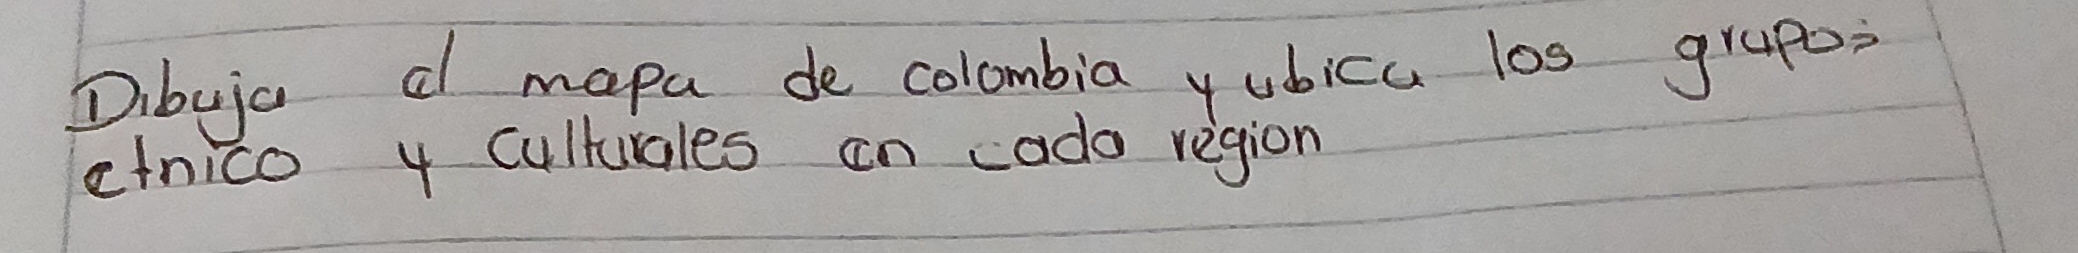 Dibuja el mapa de colombia y ubica los grupos
etnico y culturales en cada region